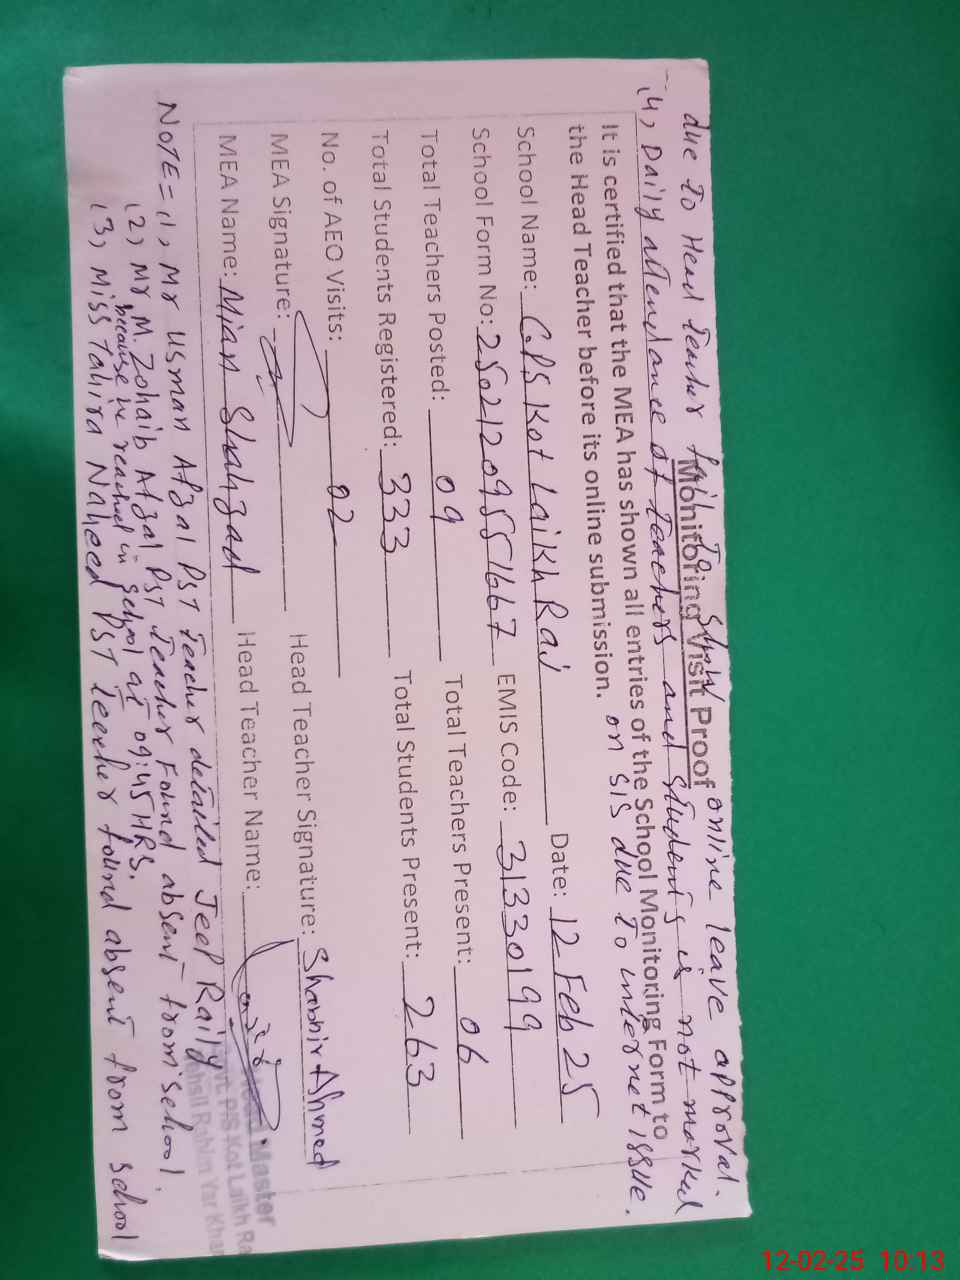 Monitoring Visit Proof
It is certified that the MEA has shown all entries of the School Monitoring Form to
the Head Teacher before its online submission.
School Name: G.P.S Kot Laikh Raj Date: 12 Feb 25
School Form No: 25021209551667 EMIS Code: 31330199
Total Teachers Posted: 09 Total Teachers Present: 06
Total Students Registered: 333 Total Students Present: 263
No. of AEO Visits: 02
MEA Signature: Head Teacher Signature: Shabbir Ahmed
MEA Name: Mian Shahzad Head Teacher Name:
Head Master
Govt. P/S Kot Laikh Ra
Tehsil Rahim Yar Khan
NOTE= (1, Mr Usman Afzal PST Teacher detailed Jeep Raily
(2, Mr M. Zohaib Afzal PST Teacher Found absent from school.
because he reached in school at 09:45 HRS.
(3, Miss Tahira Naheed PST Teecher found absent from school
due to Head Teacher fail to show online leave approval.
(4, Daily attendance of Teachers and Students is not marked
on SIS due to internet issue.
12-02-25 10:13